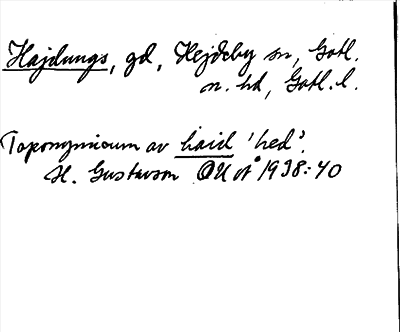 Hajdungs, gd, Hejdeby sn, Gotl.
n. hd, Gotl. l.
Toponymicum av haid 'hed'.
H. Gustavson OUÅ 1938:40